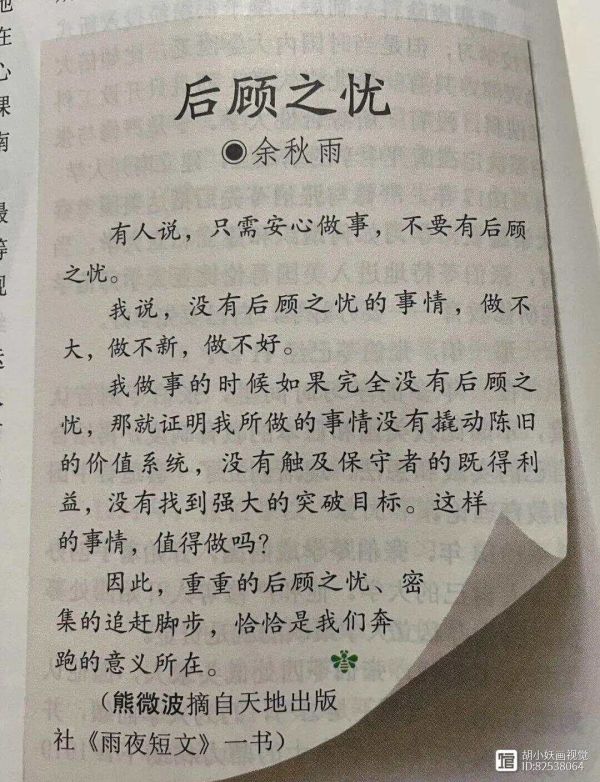 后顾之忧
◉余秋雨
有人说，只需安心做事，不要有后顾
之忧。
我说，没有后顾之忧的事情，做不
大，做不新，做不好。
我做事的时候如果完全没有后顾之
忧，那就证明我所做的事情没有撬动陈旧
的价值系统，没有触及保守者的既得利
益，没有找到强大的突破目标。这样
的事情，值得做吗？
因此，重重的后顾之忧、密
集的追赶脚步，恰恰是我们奔
跑的意义所在。
（熊微波摘自天地出版
社《雨夜短文》一书）
胡小妖画视觉
ID:82538064